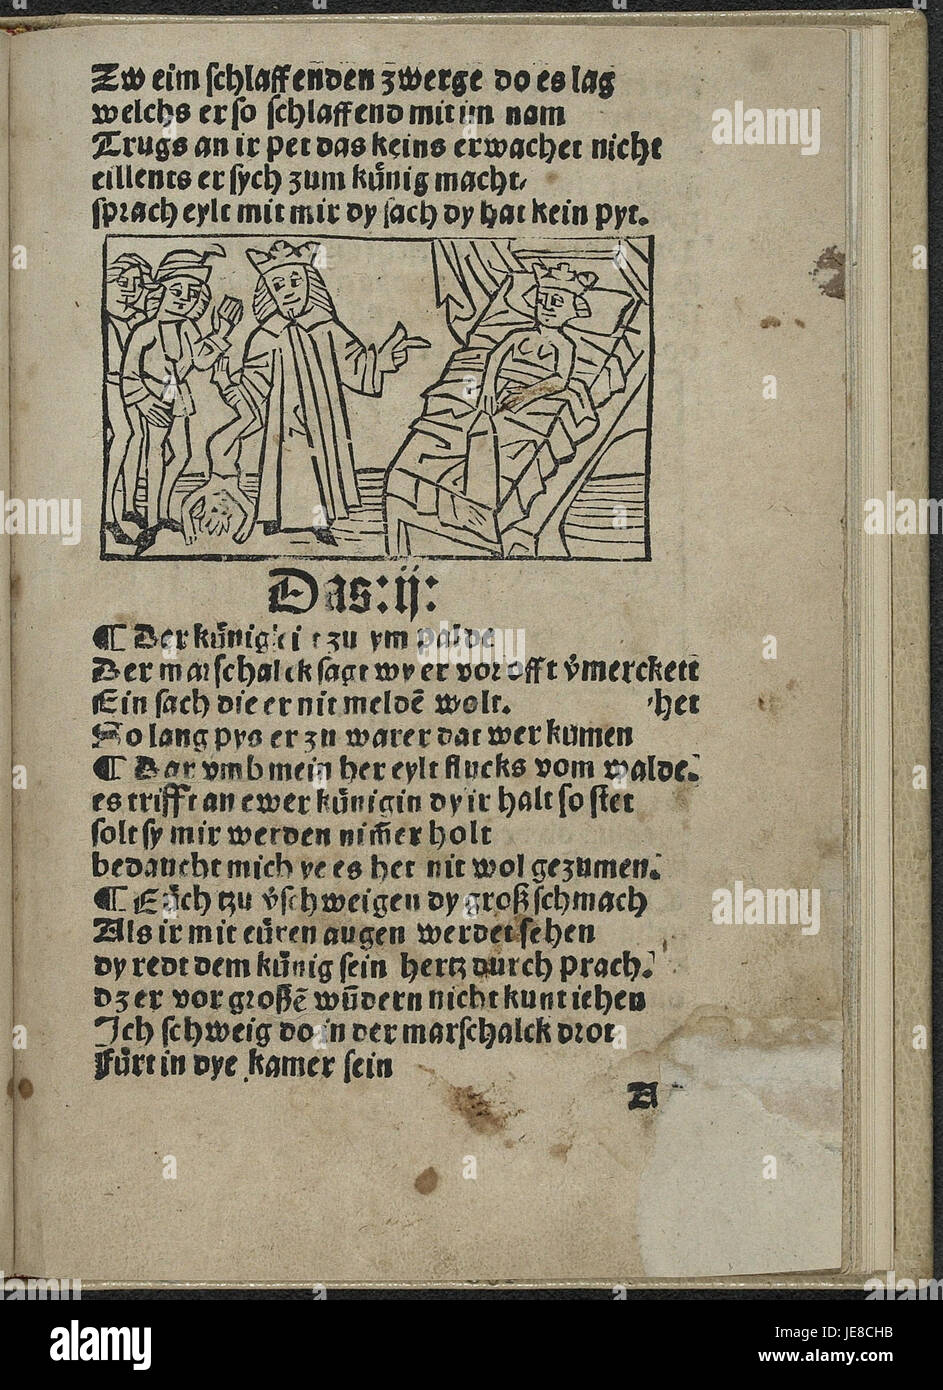 Zw eim schlaffenden zwerge do es lag
welchs er so schlaffend mit im nam
Trugs an ir pet das keins erwachet nicht
eillents er sych zum kuͤnig macht/
sprach eylt mit mir dy sach dy hat kein pyt.
Das:ij:
¶ Der kuͤnig zu ym palde
Der marschalck sagt wy er vor offt v̓merckett
Ein sach die er nit meldē wolt. het
So lang pys er zu warer dat wer kumen
¶ Dar vmb mein her eylt flucks vom walde.
es trifft an ewer kuͤnigin dy ir halt so stet
solt sy mir werden nim̄er holt
bedaucht mich ye es het nit wol gezumen.
¶ Euͤch tzu v̓schweigen dy groß schmach
Als ir mit euͤren augen werdet sehen
dy redt dem kuͤnig sein hertz durch prach.
dz er vor großē wūdern nicht kunt iehen
Ich schweig do in der marschalck drot
Fuͤrt in dye kamer sein
A
alamy
Image ID: JE8CHB
www.alamy.com